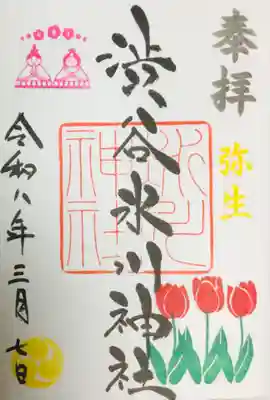 奉拝
弥生
渋谷氷川神社
令和八年三月七日